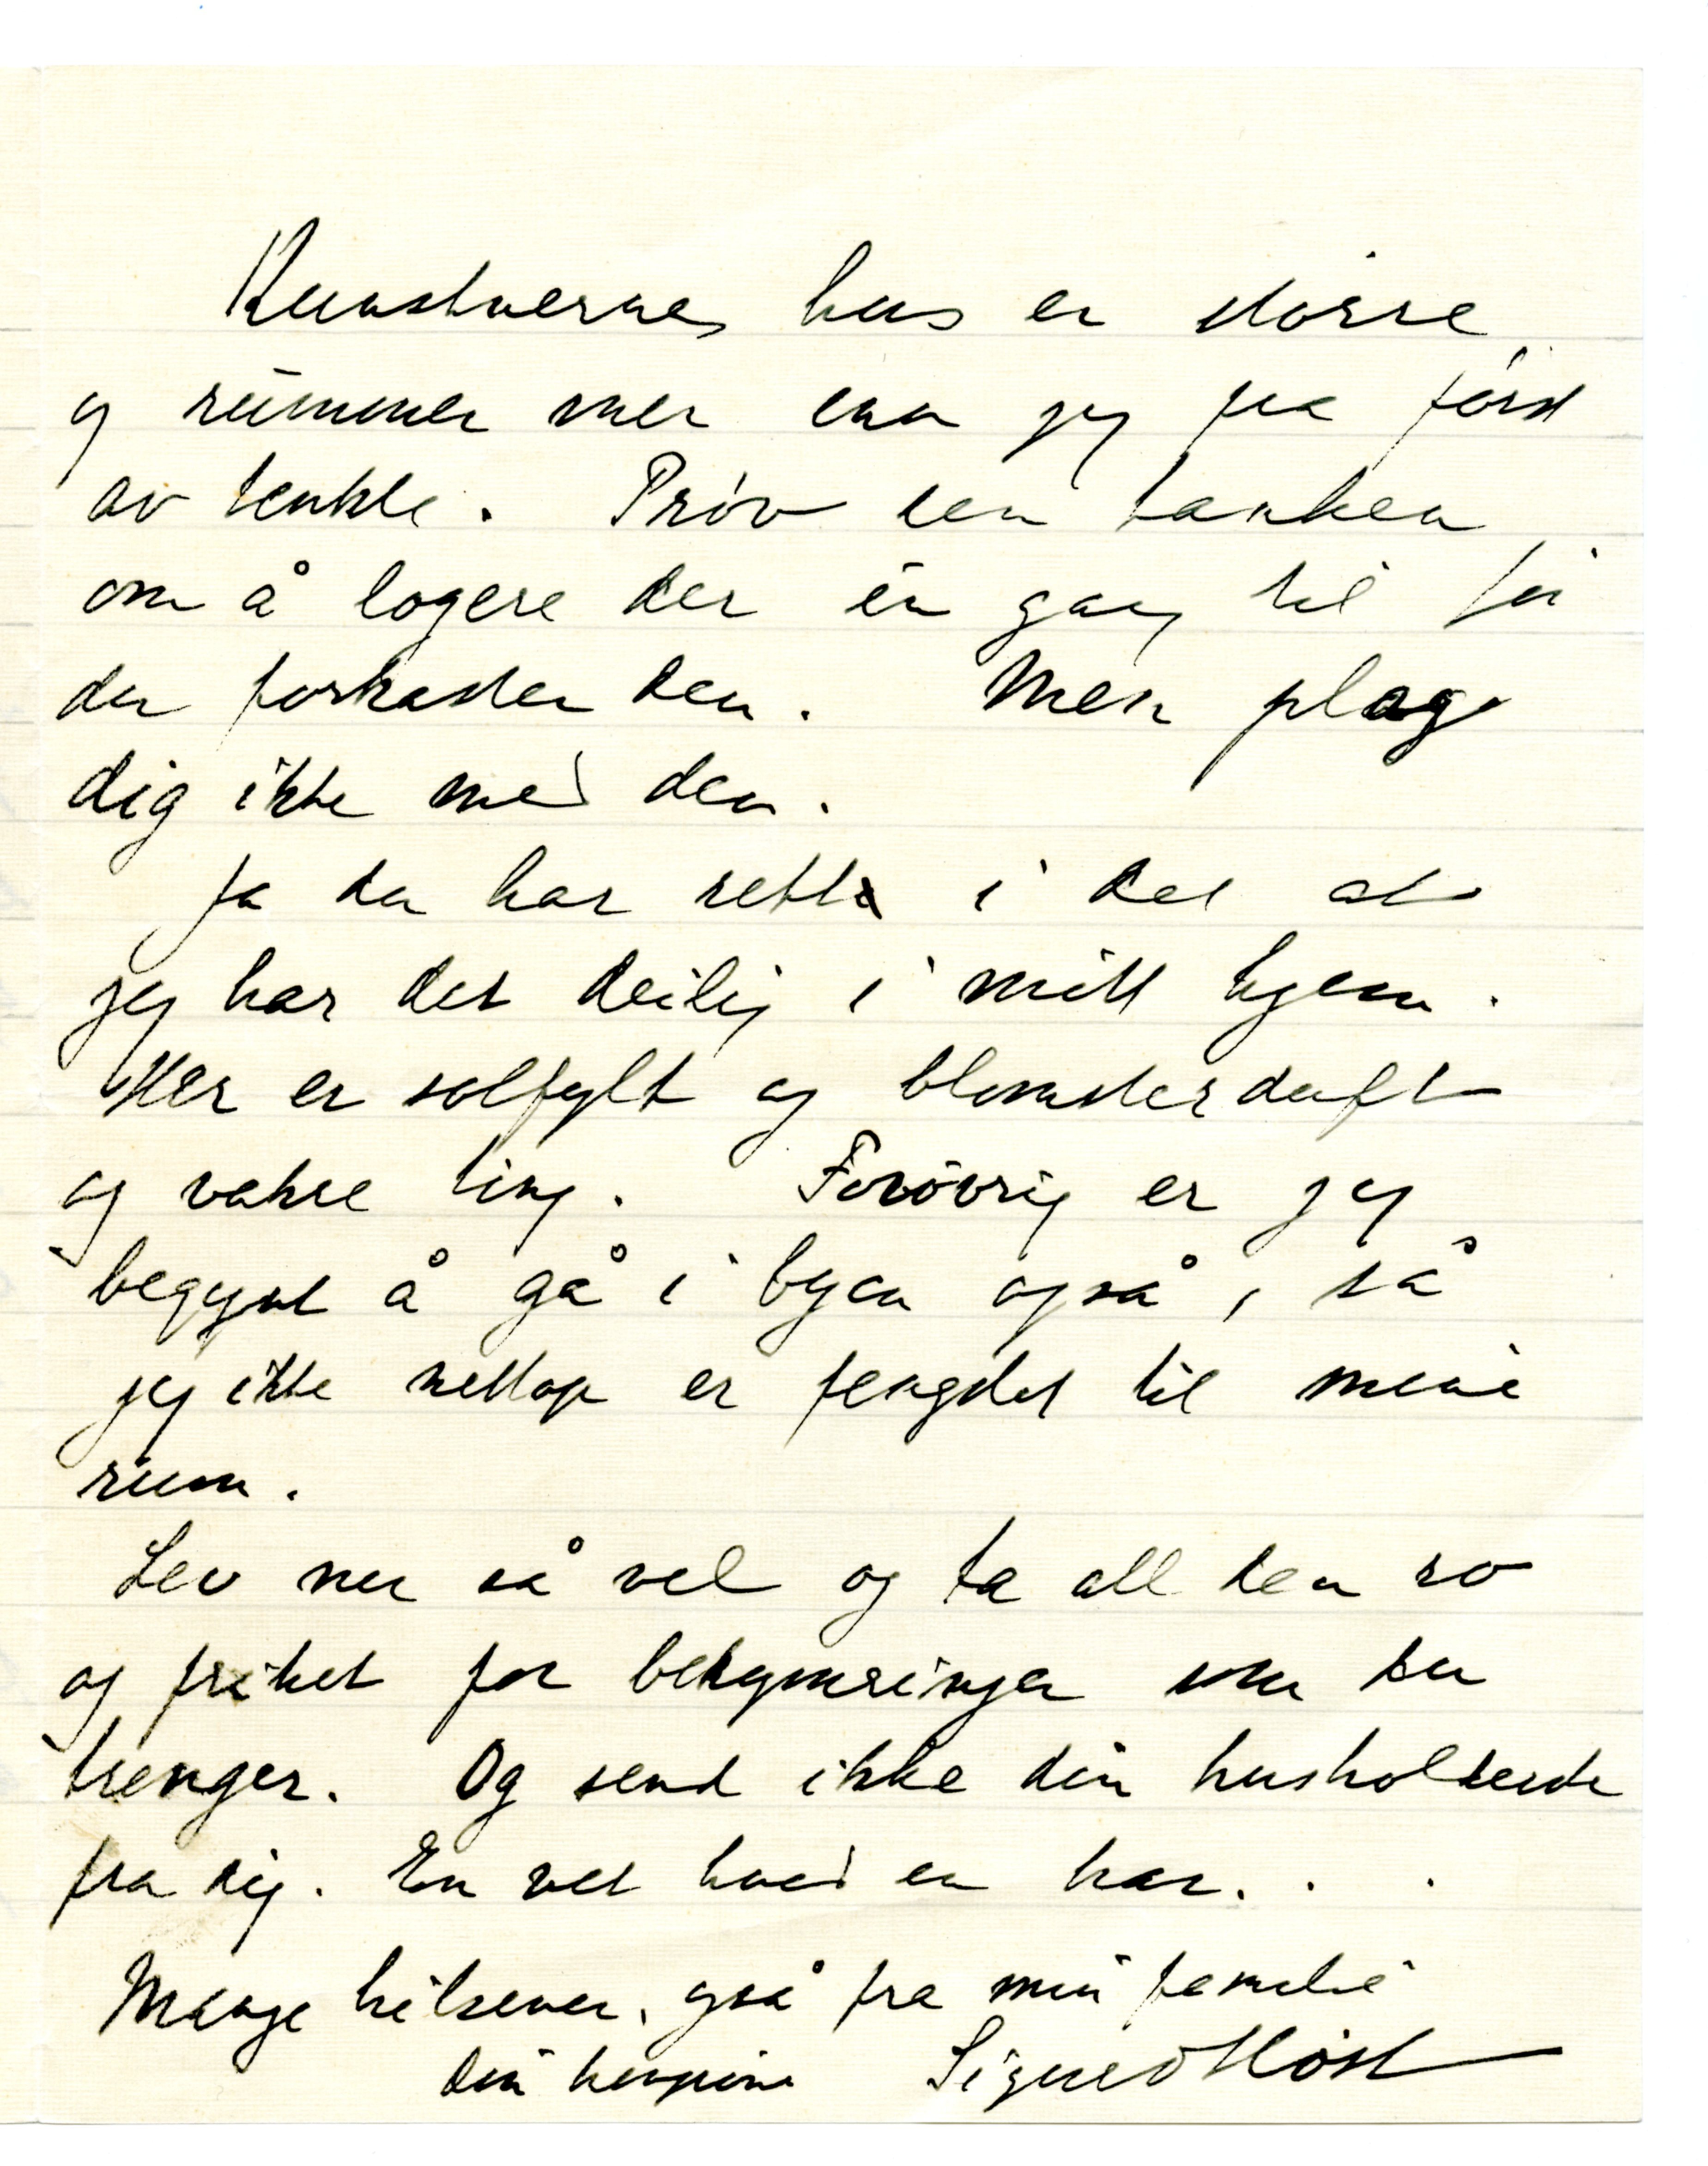 Kunstnernes hus er større
og rummer mer enn jeg fra først
av tenkte. Prøv den tanken
om å logere der én gang til før
du forkaster den. Men plag
dig ikke med den.
Ja du har rett i det at
jeg har det deilig i mitt hjem.
Her er solfylt og blomsterduft
og vakre ting. Forøvrig er jeg
begynt å gå i byen også, så
jeg ikke nettop er fengslet til mine
rum.
Lev nu så vel og ta all den ro
og frihet for bekymringer som du
trenger. Og send ikke din husholderske
fra dig. En vet hvad en har. . .
Mange hilsener, også fra min familie
din hengivne Sigurd Høst